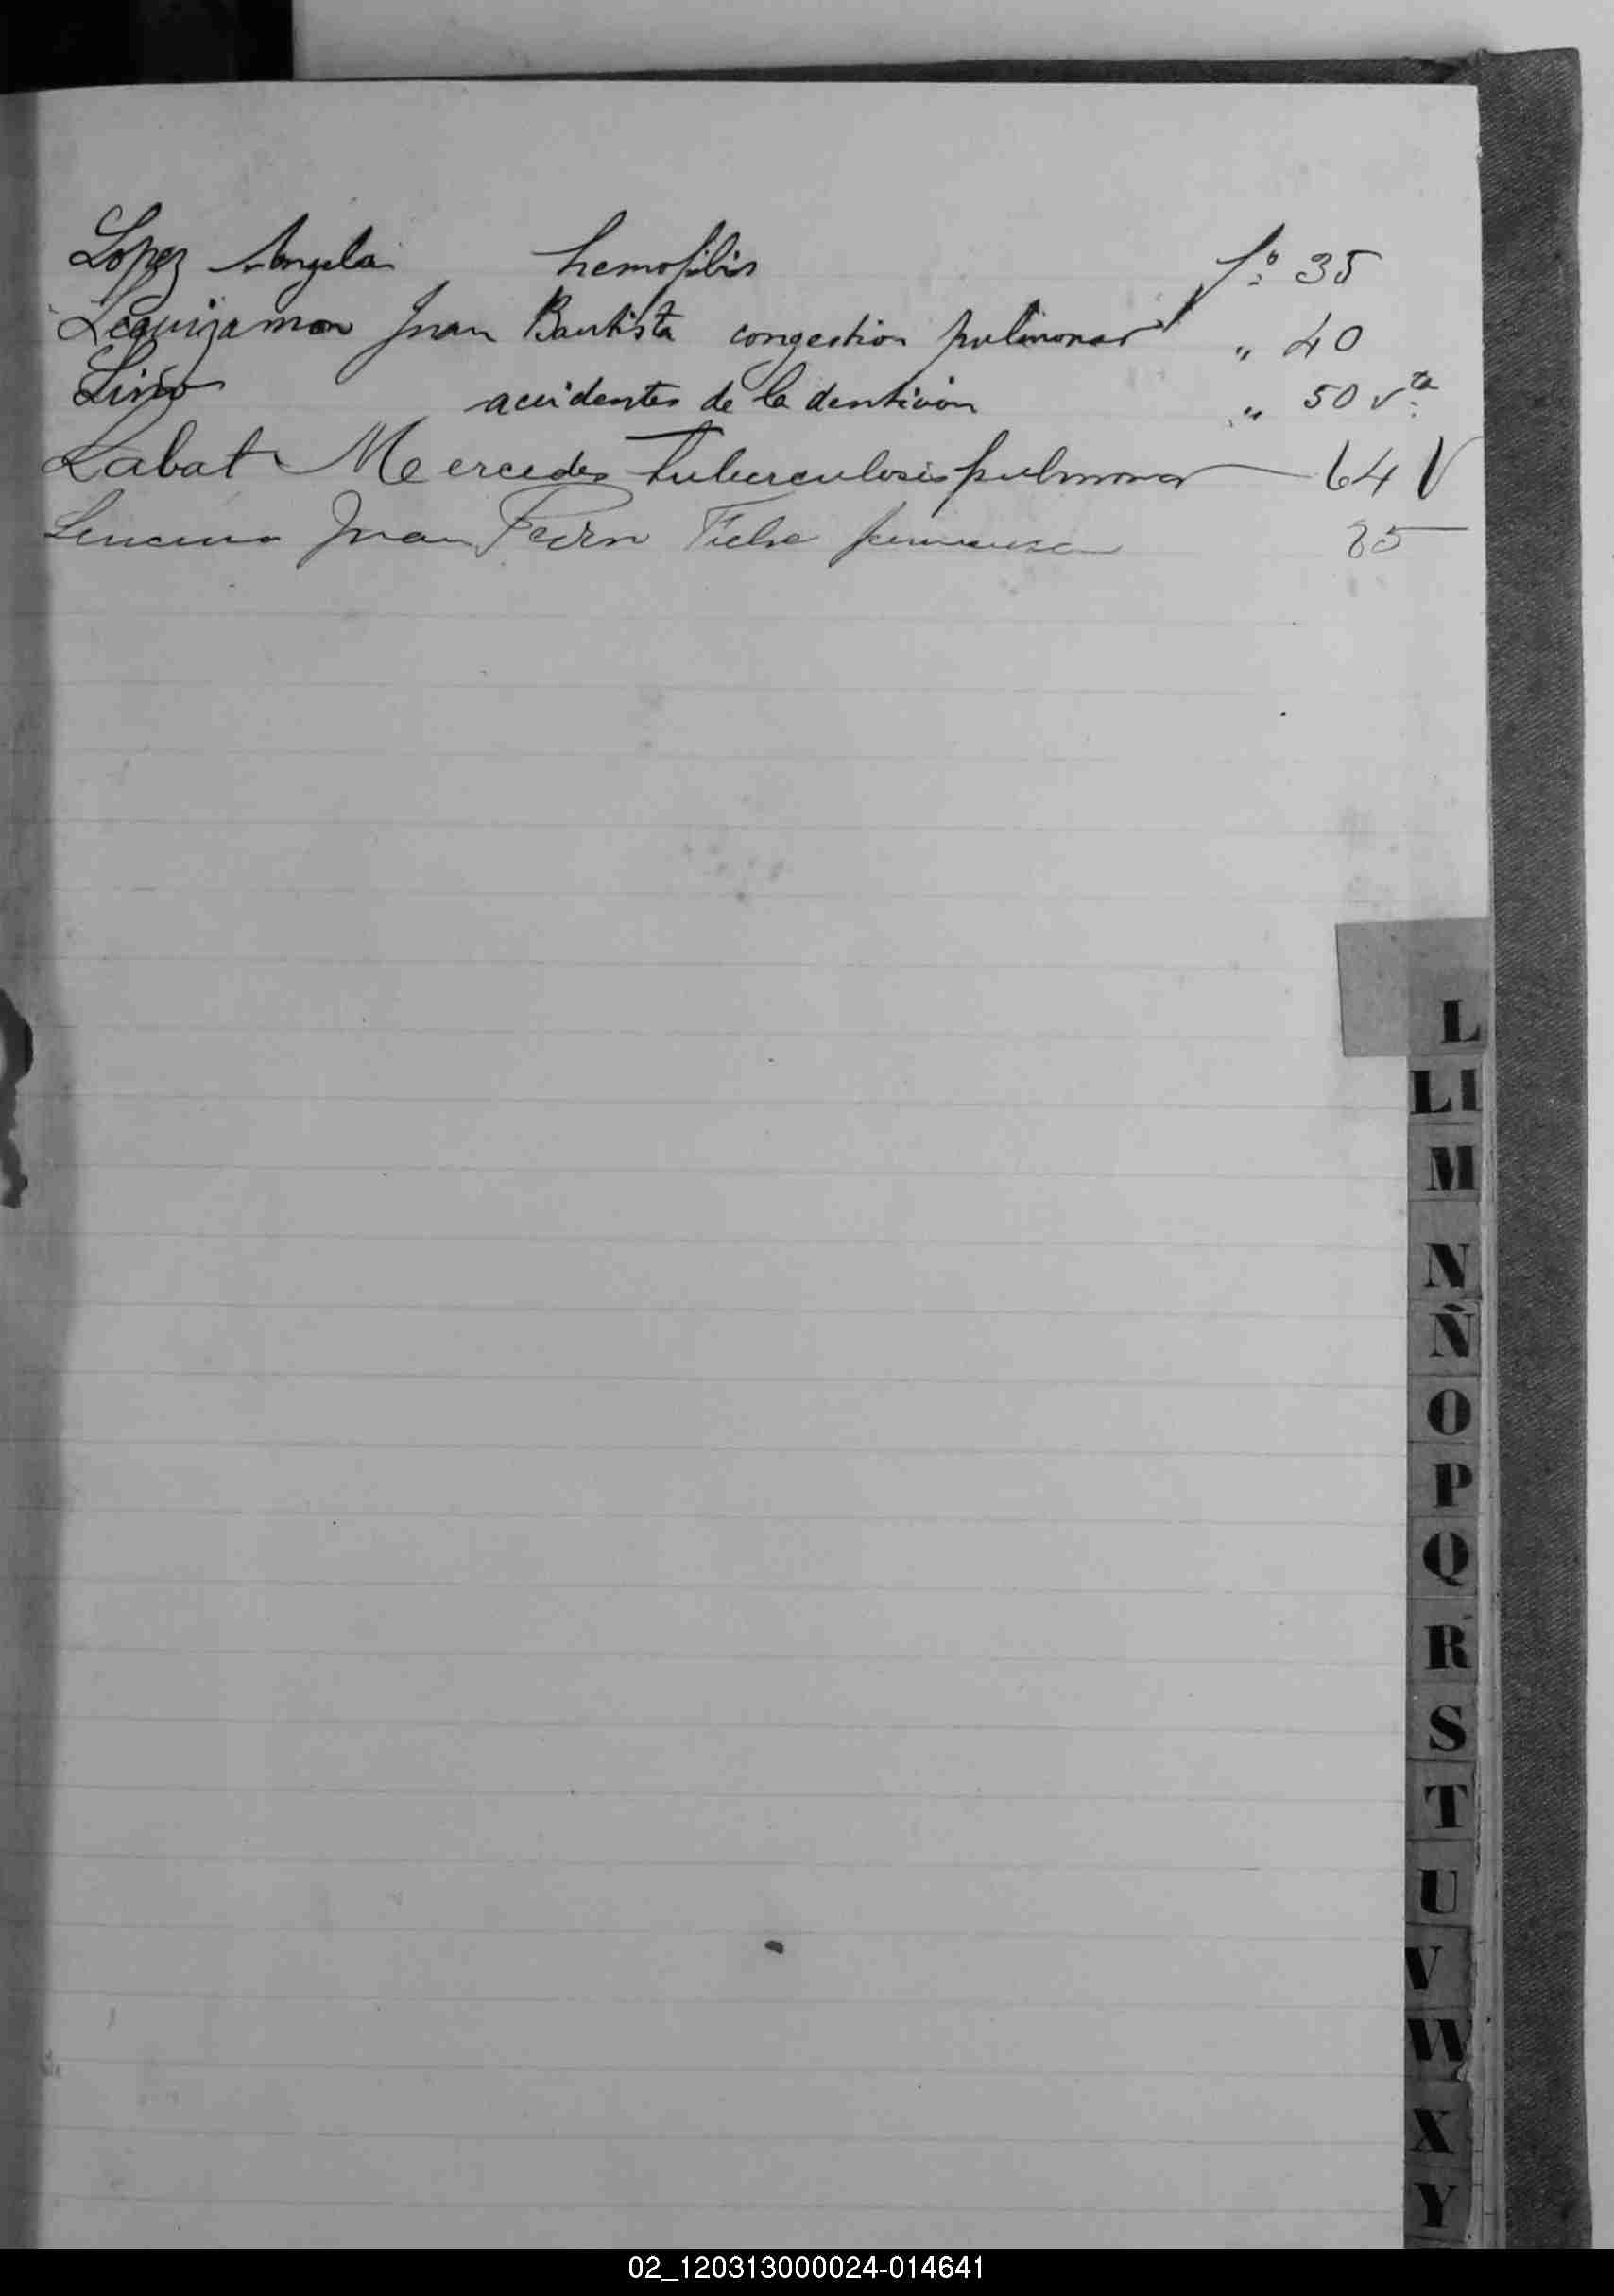 Lopez Angela hemofilis fº 35
Leguizamon Juan Bautista congestion pulmonar " 40
Lino accidentes de la denticion " 50 vta
Labat Mercedes Tuberculosis pulmonar 64 V
Juan Pedro Fiebre 85
L
Ll
M
N
Ñ
O
P
Q
R
S
T
U
V
W
X
Y
02_120313000024-014641